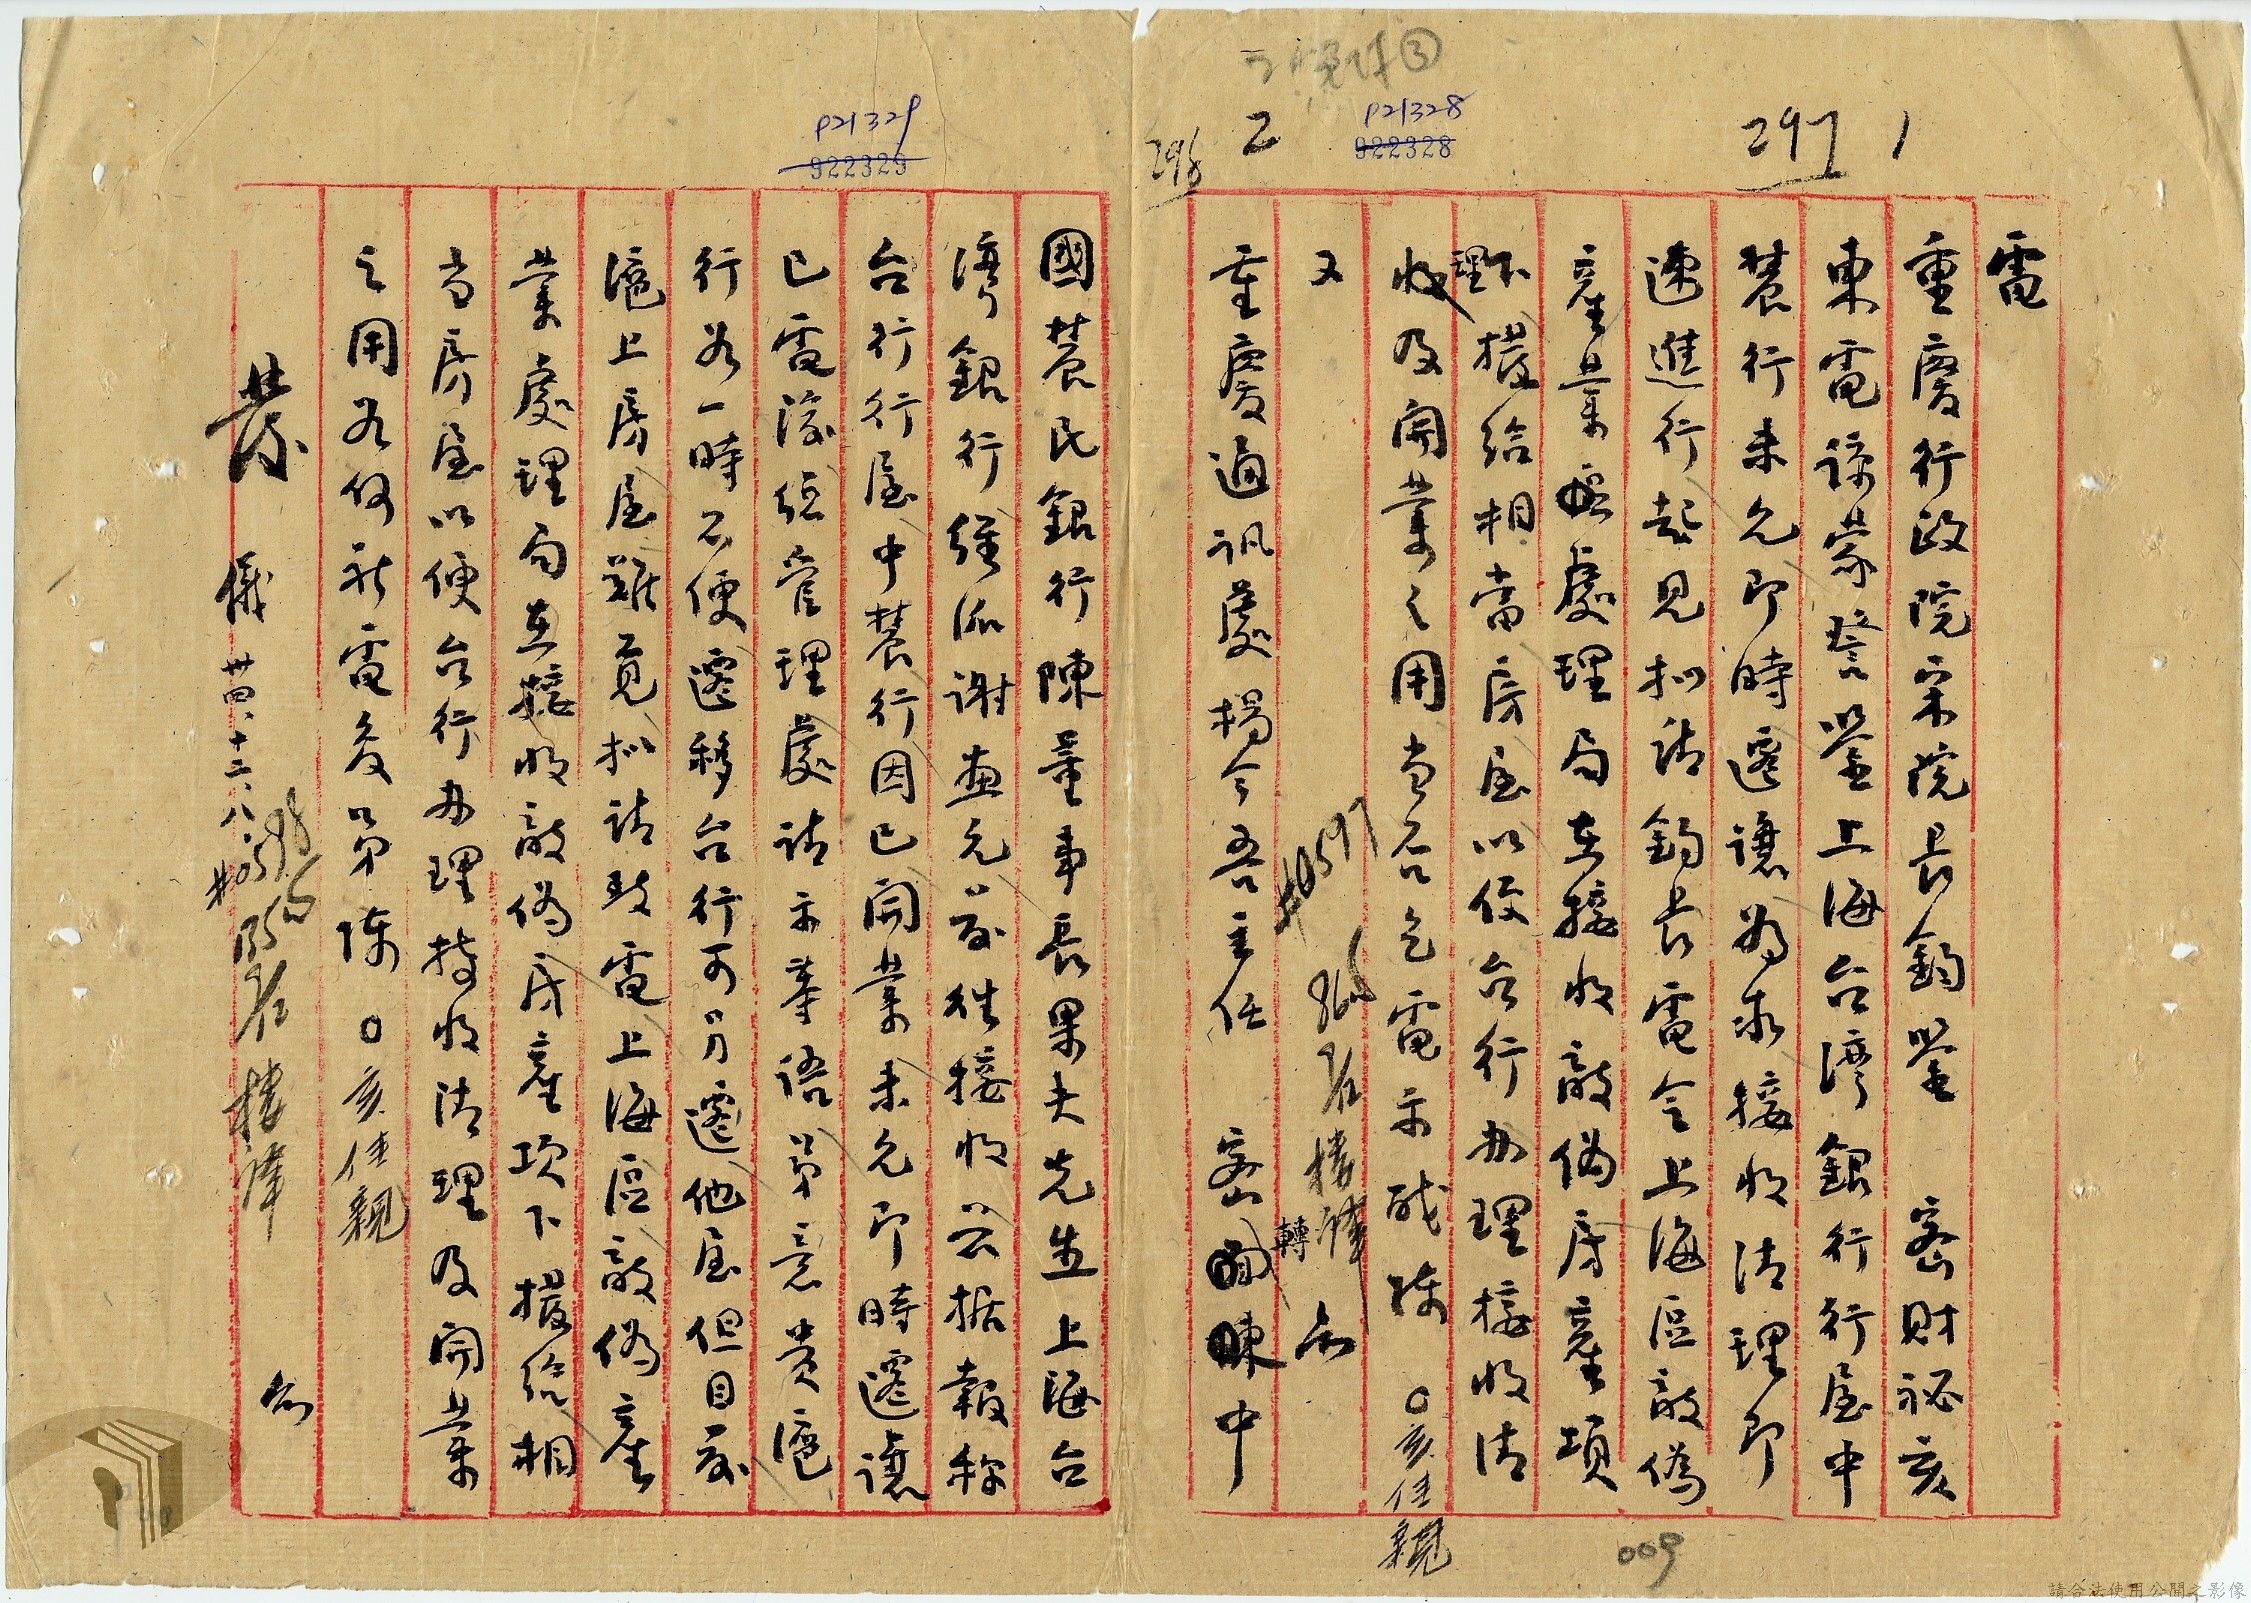 297 1
P21328
922328
2
298
電
重慶行政院宋院長鈞鑒 密財祕亥
東電諒蒙詧鑒上海台灣銀行行屋中
農行未允即時遷讓為求接收清理即
速進行起見拟請鈞長電令上海區敵偽
產業處理局在接收敵偽房產項
下撥給相當房屋以便台行办理接收清
理
收及開業之用當否乞電示職陳 0亥佳親
又 #0597 866 轉
重慶通訊處楊今吾主任 密 陳中
009
P21329
922329
國農民銀行陳董事長果夫先生上海台
灣銀行經派謝惠元前往接收茲据報称
台行行屋中農行因已開業未允即時遷讓
已電渝經管理處請示等語弟意貴滬
行為一時不便遷移台行可另遷他屋但目前
滬上房屋難覓拟請致電上海區敵偽產
業處理局在接收敵偽房產項下撥給相
當房屋以便台行办理接收清理及開業
之用為何祈電复弟陳 0亥佳親
發 儀 卅四、十二、八、 #0598
請合法使用公開之影像